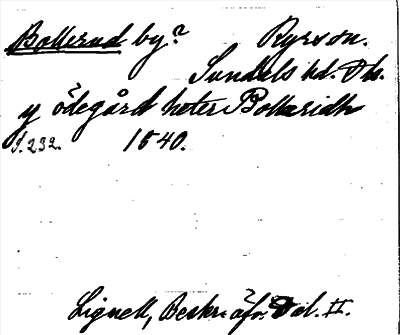 Bollerud by? Ryrs sn.
Sundals hd. Ds.
y ödegård heter Bollaridh
s. 232. 1540.
Lignell, Beskr. öfv. Dal. II.